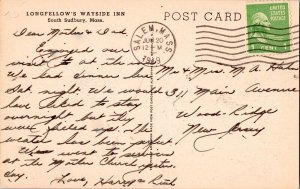 LONGFELLOW'S WAYSIDE INN
South Sudbury, Mass.
Dear Mother & Dad,
Enjoyed our
visit to at the
We had dinner here
Sat. night. We would
have liked to stay
overnight but they
were filled up. The
weather has been perfect.
We went to services
at the Mother Church yester-
day.
Love,
POST CARD
SALEM, MASS.
JUN 20
12 M
1949
1 CENT 1
Mr & Mrs. M. A.
311 Main Avenue
Wood-Ridge
New Jersey